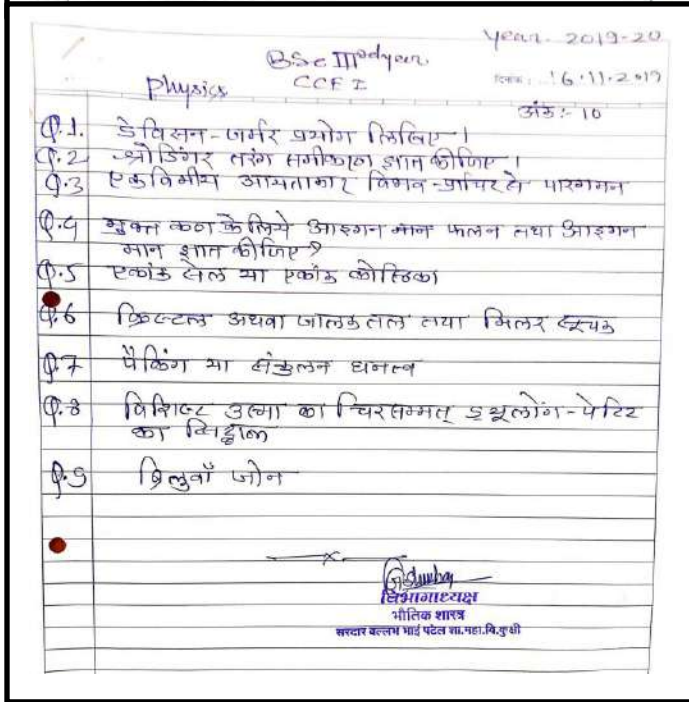 Year- 2019-20
BSc IIIrd year
Physics CCE I दिनांक : 16.11.2019
अंक:- 10
Q.1. डेविसन-जर्मर प्रयोग लिखिए।
Q.2 श्रोडिंगर तरंग समीकरण ज्ञात कीजिए।
Q.3 एकविमीय आयताकार विभव-प्राचिर से पारगमन
Q.4 मुक्त कण के लिये आइगन मान फलन तथा आइगन
मान ज्ञात कीजिए?
Q.5 एकांक सेल या एकांक कोष्ठिका
Q.6 क्रिस्टल अथवा जालक तल तथा मिलर सूचक
Q.7 पैकिंग या संकुलन घनत्व
Q.8 विशिष्ट उष्मा का चिरसम्मत् ड्यूलोंग-पेटिट
का सिद्धान्त
Q.9 ब्रिलुवाँ जोन
विभागाध्यक्ष
भौतिक शास्त्र
सरदार वल्लभ भाई पटेल शा.महा.वि.कुक्षी